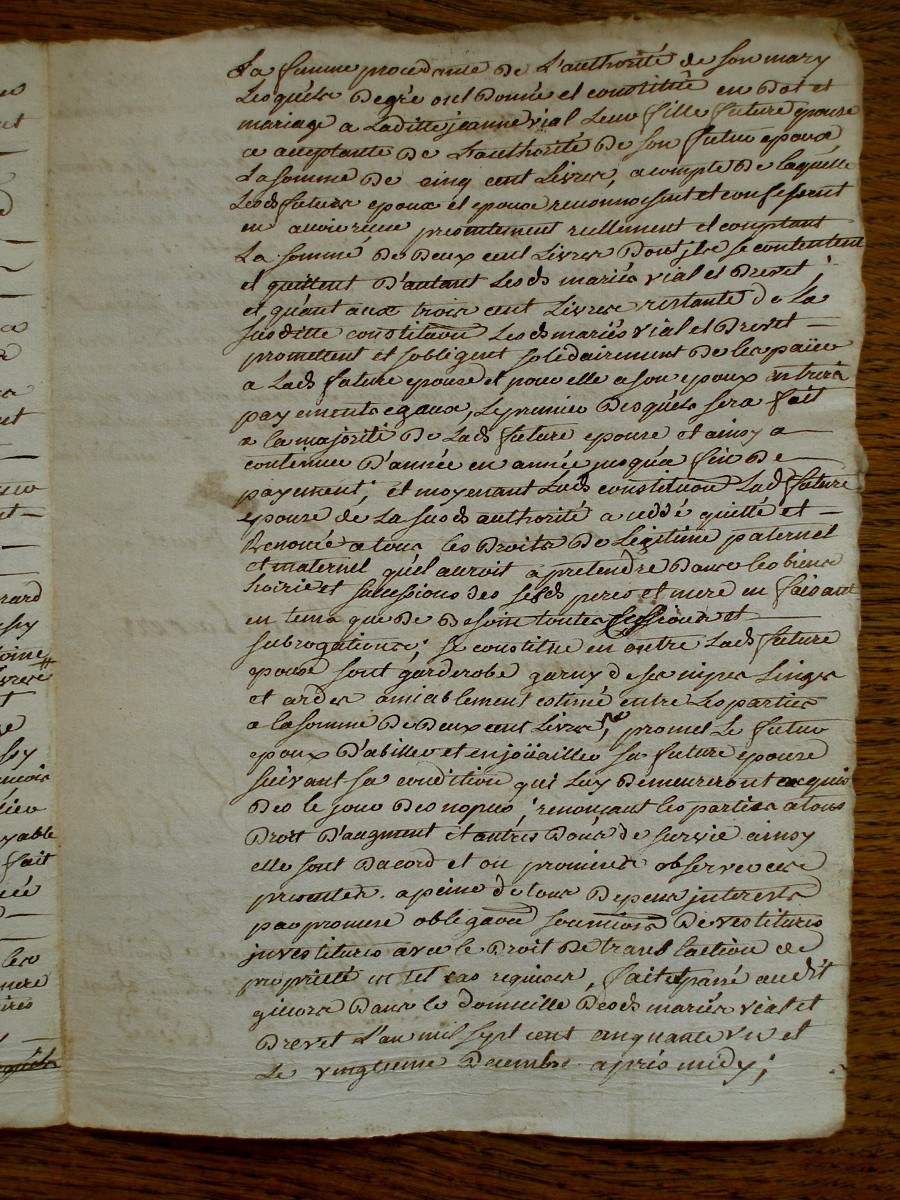 La femme procedante de L'authorité de son mary
Lesquels degré ont donné et constitué en Dot et
mariage a Laditte jeanne vial Leur fille future epouse
ce acceptante de L'authorité de son futur epoux
La somme de cinq cent Livres, a compte de laquelle
Lesds futurs epoux et epouse reconnoissent et confessent
en avoir reçue presentement reellement et comptant
La somme de deux cent Livres dont ils se contentent
et quittent d'autant Lesds mariés vial et Drevet;
et quant aux trois cent Livres restante de La
susditte constitution Lesds mariés vial et Drevet —
promettent et sobligent solidairement de les païer
a Lads future epouse et pour elle a son epoux en trois
payements egaux, Le premier desquels sera fait
a la majorité de Lads future epouse et ainsy a
continuer d'année en année jusqua fin de
payement; et moyenant Lads constitution Lads future
epouse de La susds authorité a cedé quitté et —
Renoncé a tous les droits de Legitime paternel
et maternel quel auroit a pretendre dans les biens
hoirie et successions des sesds pere et mere en faisant
en tems que de besoin toutes cessions et
subrogations; se constitue en outre Lads future
epouse sont garderobe garny de ses nipes Linges
et ardes amiablement estimé entre Les parties
a la somme de deux cent Livres, promet Le futur
epoux d'abiller et enjoüailler sa future epouse
suivant sa condition qui Luy demeureront acquis
des le jour des nopces; renonçant les parties a tous
droit d'augment et autres dons de survie ainsy
elle sont dacord et on promises observer ces
presentes. a peine de tous depens interests
par promesse obligation soumissions de vestitures
investitures avec le droit de translaction de
proprieté en tel cas requises, fait et passé audit
givors dans le domicille desds mariés vial et
Drevet L'an mil sept cent cinquante un et
Le vingtieme decembre après midy;